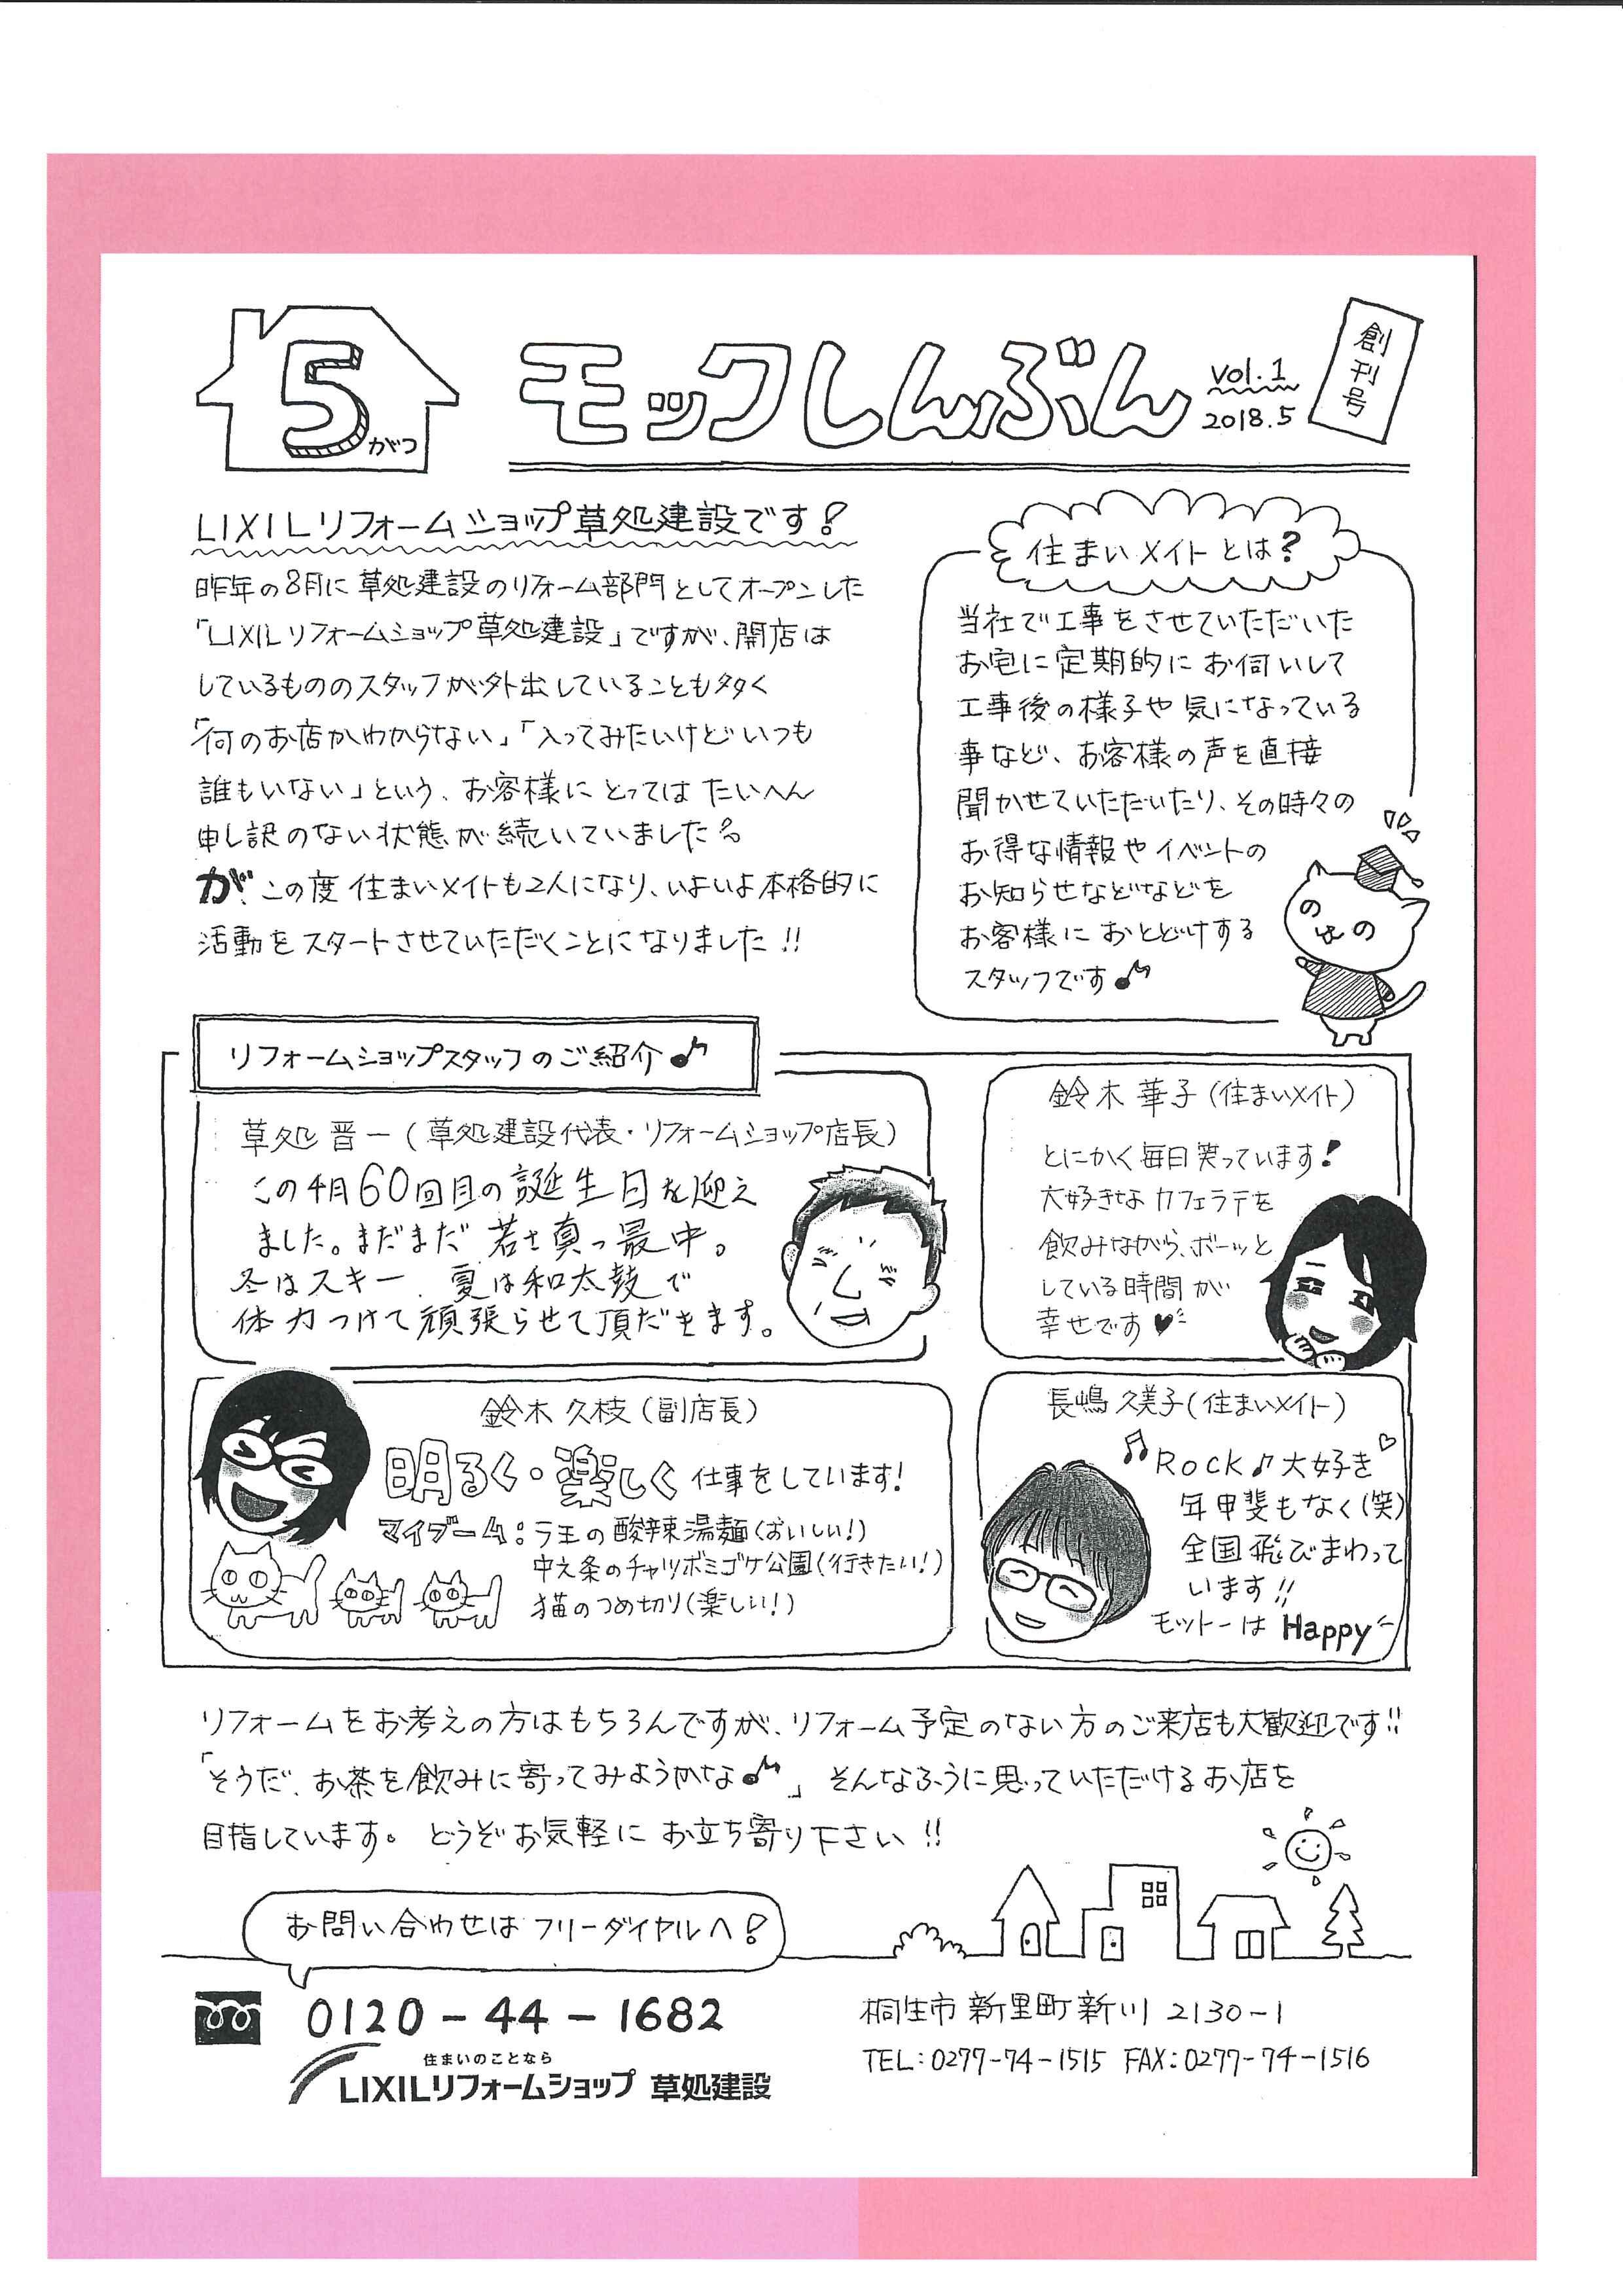 5がつ
モックしんぶん
vol.1
2018.5
創刊号
LIXILリフォームショップ草処建設です!
昨年の8月に草処建設のリフォーム部門としてオープンした
「LIXILリフォームショップ草処建設」ですが、開店は
しているもののスタッフが外出していることも多く
「何のお店かわからない」「入ってみたいけどいつも
誰もいない」という、お客様にとってはたいへん
申し訳のない状態が続いていました。
が、この度住まいメイトも2人になり、いよいよ本格的に
活動をスタートさせていただくことになりました!!
住まいメイトとは?
当社で工事をさせていただいた
お宅に定期的にお伺いして
工事後の様子や気になっている
事など、お客様の声を直接
聞かせていただいたり、その時々の
お得な情報やイベントの
お知らせなどなどを
お客様におとどけする
スタッフです♪
のはの
リフォームショップスタッフのご紹介♪
草処晋一(草処建設代表・リフォームショップ店長)
この4月60回目の誕生日を迎え
ました。まだまだ若さ真っ最中。
冬はスキー、夏は和太鼓で
体力つけて頑張らせて頂だきます。
鈴木華子(住まいメイト)
とにかく毎日笑っています!
大好きなカフェラテを
飲みながら、ボーッと
している時間が
幸せです♥
鈴木久枝(副店長)
明るく・楽しく仕事をしています!
マイブーム:ラ王の酸辣湯麺(おいしい!)
中之条のチャツボミゴケ公園(行きたい!)
猫のつめ切り(楽しい!)
長嶋久美子(住まいメイト)
♫Rock♪大好き♡
年甲斐もなく(笑)
全国飛びまわって
います!!
モットーはHappy
リフォームをお考えの方はもちろんですが、リフォーム予定のない方のご来店も大歓迎です!!
「そうだ、お茶を飲みに寄ってみようかな♪」そんなふうに思っていただけるお店を
目指しています。どうぞお気軽にお立ち寄り下さい!!
お問い合わせはフリーダイヤルへ!
0120-44-1682
住まいのことなら
LIXILリフォームショップ 草処建設
桐生市新里町新川2130-1
TEL:0277-74-1515 FAX:0277-74-1516